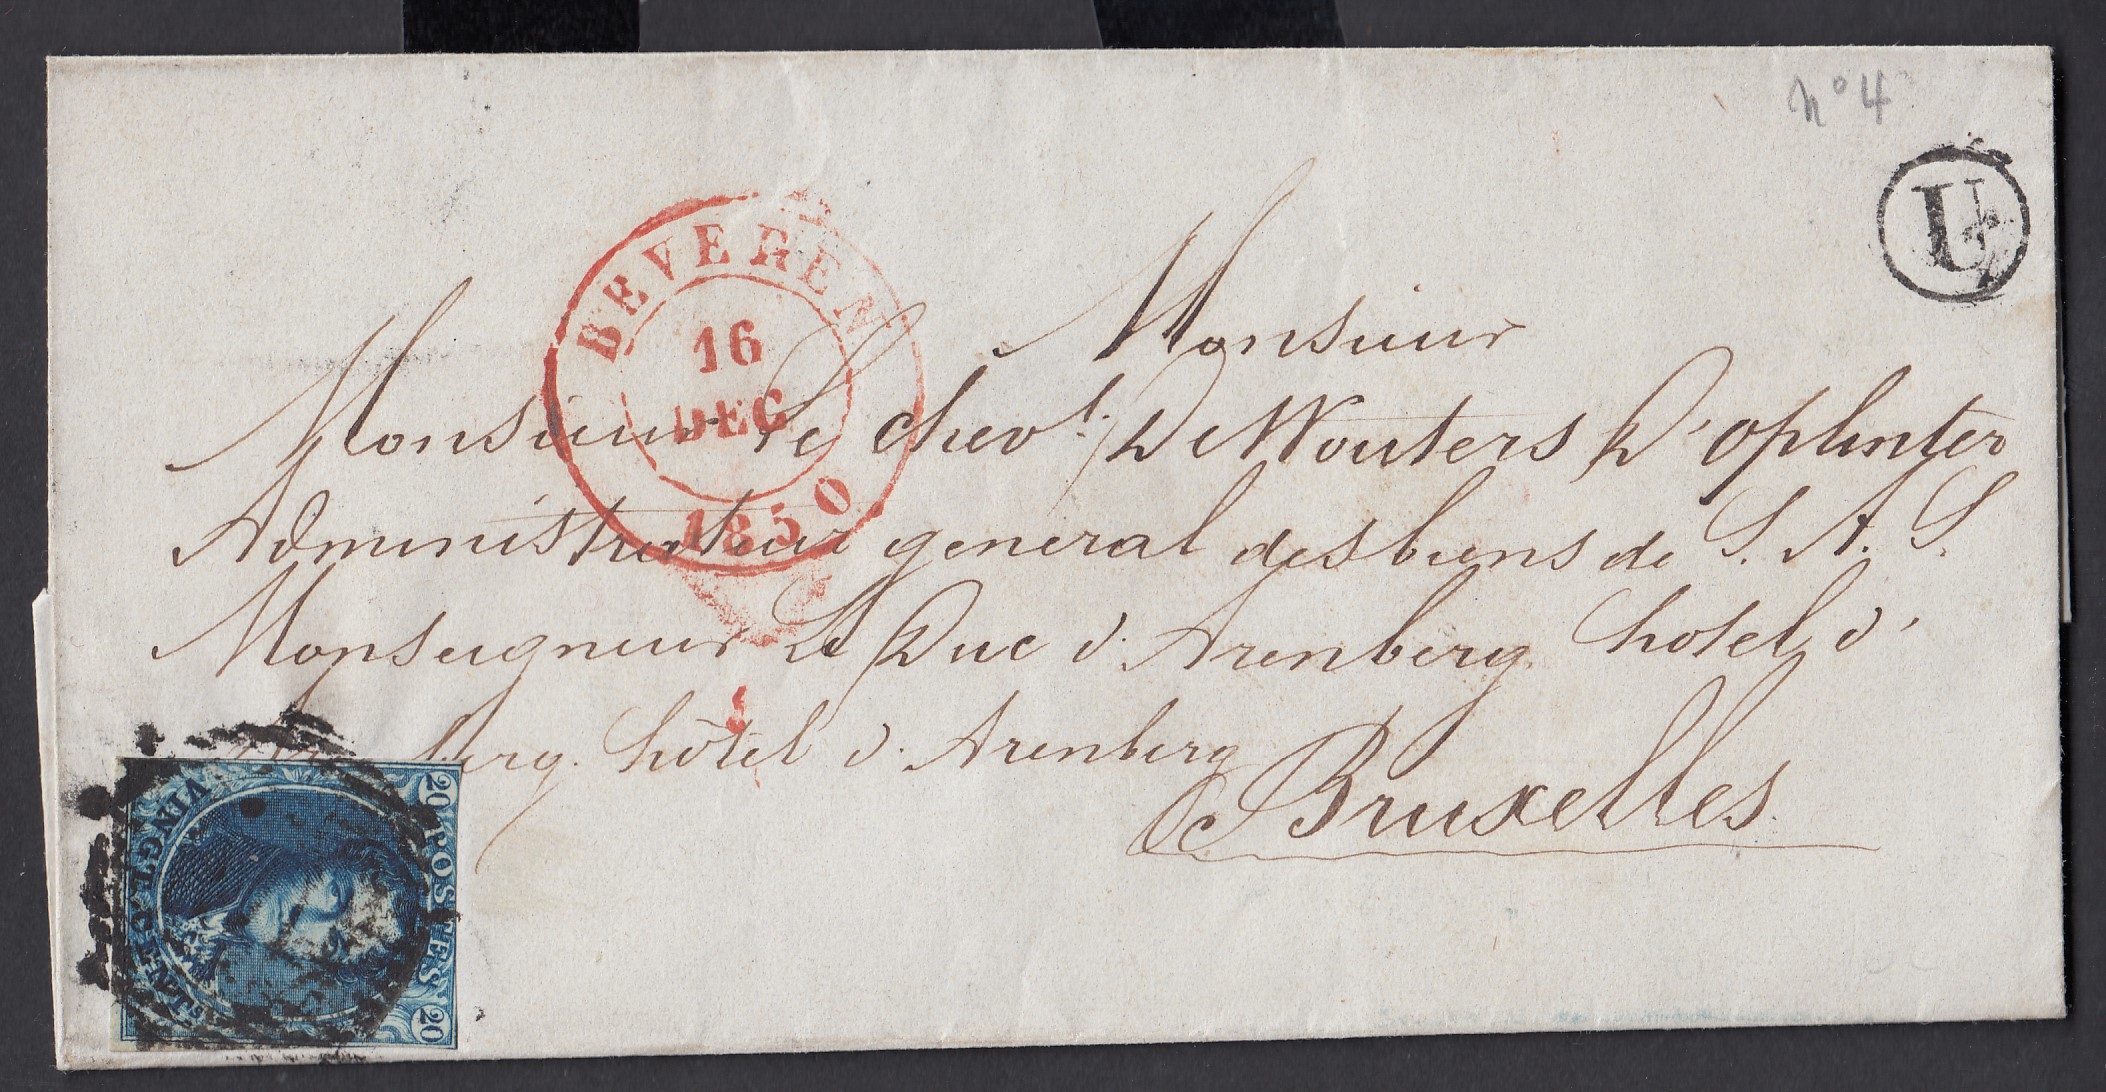 n° 4
U
BEVEREN
16
DEC
1850
Monsieur
Monsieur Le chevr. De Wouters D'oplinter
Administrateur general des biens de S. A. S.
Monseigneur Le Duc d'Arenberg. hotel d'
berg. hôtel d'Arenberg
Bruxelles
POSTES
20 20
VINGT CENTS